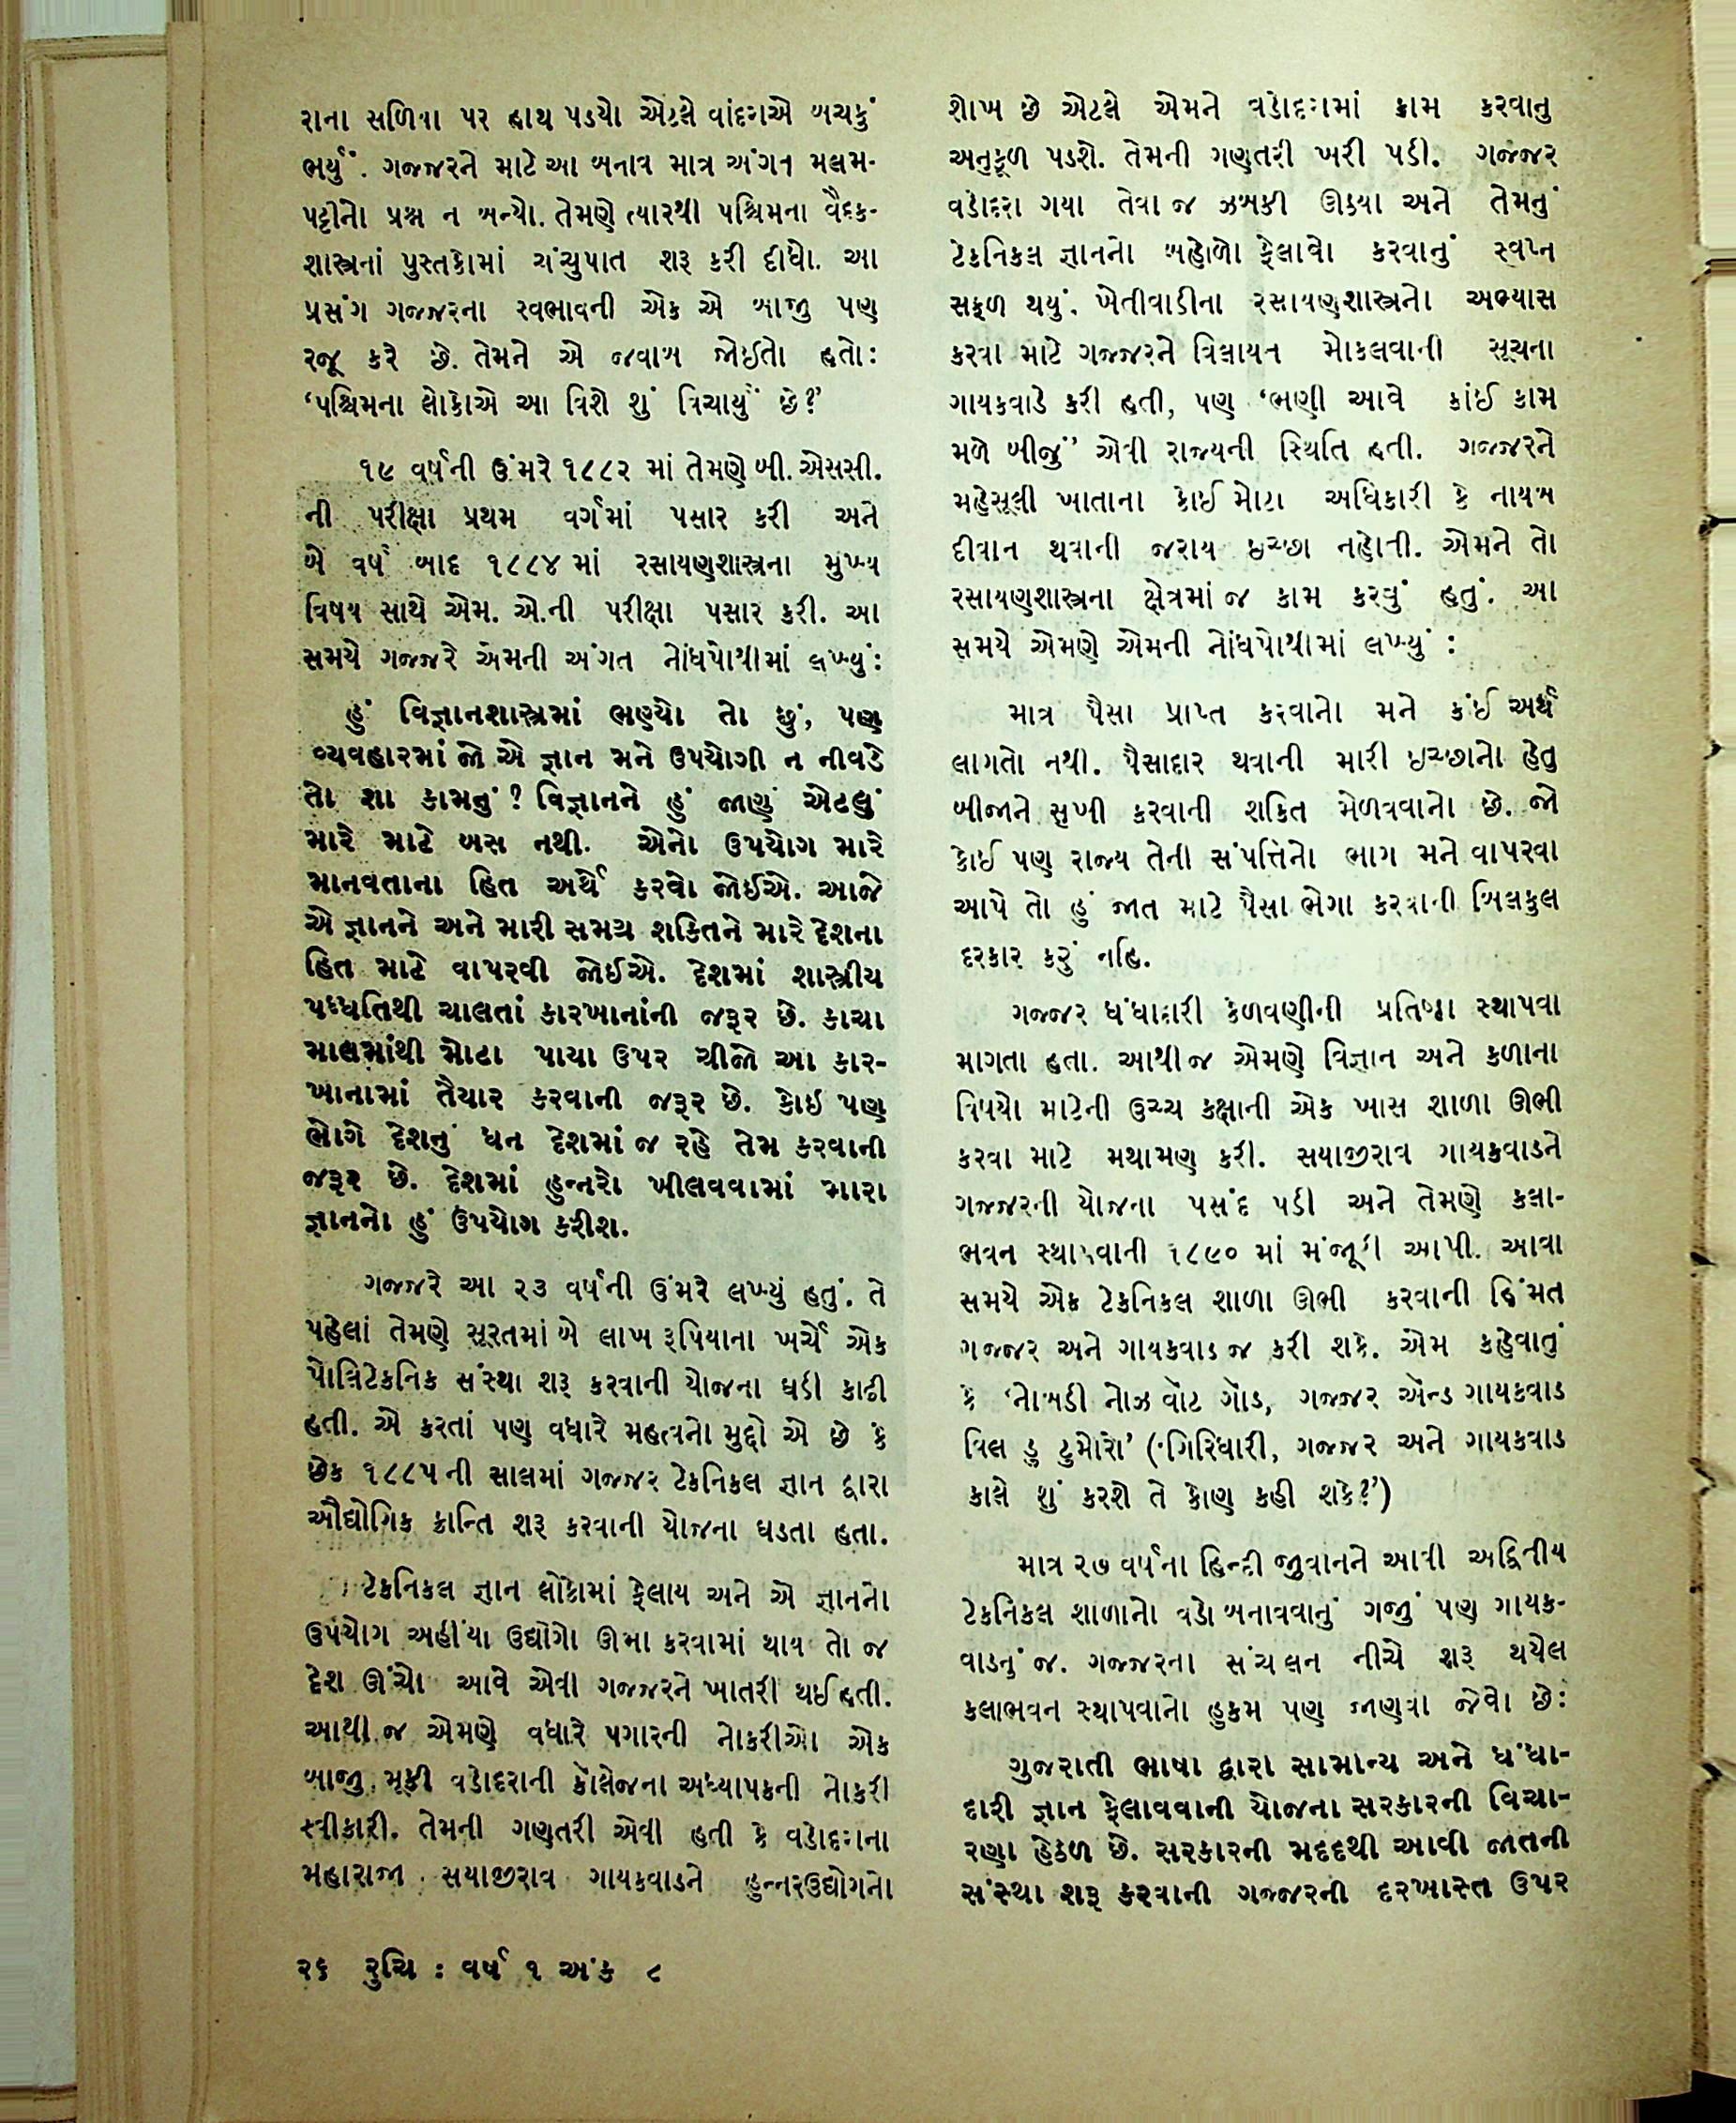 રાના સળિયા પર હાથ પડયો એટલે વાંદરાએ બચકું
ભર્યું. ગજ્જરને માટે આ બનાવ માત્ર અંગત મલમ-
પટ્ટીનો પ્રશ્ન ન બન્યો. તેમણે ત્યારથી પશ્ચિમના વૈદક-
શાસ્ત્રનાં પુસ્તકોમાં ચંચુપાત શરૂ કરી દીધો. આ
પ્રસંગ ગજ્જરના સ્વભાવની એક એ બાજુ પણ
રજૂ કરે છે. તેમને એ જવાબ જોઈતો હતો:
‘પશ્ચિમના લોકોએ આ વિશે શું વિચાર્યું છે?’
૧૯ વર્ષની ઉંમરે ૧૮૮૨ માં તેમણે બી. એસસી.
ની પરીક્ષા પ્રથમ વર્ગમાં પસાર કરી અને
બે વર્ષ બાદ ૧૮૮૪ માં રસાયણશાસ્ત્રના મુખ્ય
વિષય સાથે એમ. એ.ની પરીક્ષા પસાર કરી. આ
સમયે ગજ્જરે એમની અંગત નોંધપોથીમાં લખ્યું:
હું વિજ્ઞાનશાસ્ત્રમાં ભણ્યો તો છું, પણ
વ્યવહારમાં જો એ જ્ઞાન મને ઉપયોગી ન નીવડે
તો શા કામનું? વિજ્ઞાનને હું જાણું એટલું
મારે માટે બસ નથી. એનો ઉપયોગ મારે
માનવતાના હિત અર્થે કરવો જોઈએ. આજે
એ જ્ઞાનને અને મારી સમગ્ર શકિતને મારે દેશના
હિત માટે વાપરવી જોઈએ. દેશમાં શાસ્ત્રીય
પધ્ધતિથી ચાલતાં કારખાનાંની જરૂર છે. કાચા
માલમાંથી મોટા પાયા ઉપર ચીજો આ કાર-
ખાનામાં તૈયાર કરવાની જરૂર છે. કોઇ પણ
ભોગે દેશનું ધન દેશમાં જ રહે તેમ કરવાની
જરૂર છે. દેશમાં હુન્નરો ખીલવવામાં મારા
જ્ઞાનનો હું ઉપયોગ કરીશ.
ગજ્જરે આ ૨૩ વર્ષની ઉંમરે લખ્યું હતું. તે
પહેલાં તેમણે સૂરતમાં બે લાખ રૂપિયાના ખર્ચે એક
પોલિટેકનિક સંસ્થા શરૂ કરવાની યોજના ઘડી કાઢી
હતી. એ કરતાં પણ વધારે મહત્વનો મુદ્દો એ છે કે
છેક ૧૮૮૫ ની સાલમાં ગજ્જર ટેકનિકલ જ્ઞાન દ્વારા
ઔદ્યોગિક ક્રાન્તિ શરૂ કરવાની યોજના ઘડતા હતા.
ટેકનિકલ જ્ઞાન લોકોમાં ફેલાય અને એ જ્ઞાનનો
ઉપયોગ અહીંયા ઉદ્યોગો ઊભા કરવામાં થાય તો જ
દેશ ઊંચો આવે એવી ગજ્જરને ખાતરી થઈ હતી.
આથી જ એમણે વધારે પગારની નોકરીઓ એક
બાજુ મૂકી વડોદરાની કૉલેજના અધ્યાપકની નોકરી
સ્વીકારી. તેમની ગણતરી એવી હતી કે વડોદરાના
મહારાજા સયાજીરાવ ગાયકવાડને હુન્નરઉદ્યોગનો
શોખ છે એટલે એમને વડોદરામાં કામ કરવાનુ
અનુકૂળ પડશે. તેમની ગણતરી ખરી પડી. ગજ્જર
વડોદરા ગયા તેવા જ ઝબકી ઊઠયા અને તેમનું
ટેકનિકલ જ્ઞાનનો બહોળો ફેલાવો કરવાનું સ્વપ્ન
સફળ થયું. ખેતીવાડીના રસાયણશાસ્ત્રનો અભ્યાસ
કરવા માટે ગજ્જરને વિલાયત મોકલવાની સૂચના
ગાયકવાડે કરી હતી, પણ ‘ભણી આવે કાંઈ કામ
મળે બીજું’ એવી રાજ્યની સ્થિતિ હતી. ગજ્જરને
મહેસૂલી ખાતાના કોઈ મોટા અધિકારી કે નાયબ
દીવાન થવાની જરાય ઇચ્છા નહોતી. એમને તો
રસાયણશાસ્ત્રના ક્ષેત્રમાં જ કામ કરવું હતું. આ
સમયે એમણે એમની નોંધપોથીમાં લખ્યું :
માત્ર પૈસા પ્રાપ્ત કરવાનો મને કંઈ અર્થ
લાગતો નથી. પૈસાદાર થવાની મારી ઇચ્છાનો હેતુ
બીજાને સુખી કરવાની શકિત મેળવવાનો છે. જો
કોઈ પણ રાજ્ય તેની સંપત્તિનો ભાગ મને વાપરવા
આપે તો હું જાત માટે પૈસા ભેગા કરવાની બિલકુલ
દરકાર કરું નહિ.
ગજ્જર ધંધાદારી કેળવણીની પ્રતિષ્ઠા સ્થાપવા
માગતા હતા. આથી જ એમણે વિજ્ઞાન અને કળાના
વિષયો માટેની ઉચ્ચ કક્ષાની એક ખાસ શાળા ઊભી
કરવા માટે મથામણ કરી. સયાજીરાવ ગાયકવાડને
ગજ્જરની યોજના પસંદ પડી અને તેમણે કલા-
ભવન સ્થાપવાની ૧૮૯૦ માં મંજૂરી આપી. આવા
સમયે એક ટેકનિકલ શાળા ઊભી કરવાની હિંમત
ગજ્જર અને ગાયકવાડ જ કરી શકે. એમ કહેવાતું
કે ‘નોબડી નોઝ વૉટ ગૉડ, ગજ્જર ઍન્ડ ગાયકવાડ
વિલ ડુ ટુમોરો’ (‘ગિરિધારી, ગજ્જર અને ગાયકવાડ
કાલે શું કરશે તે કોણ કહી શકે?’)
માત્ર ૨૭ વર્ષના હિન્દી જુવાનને આવી અદ્વિતીય
ટેકનિકલ શાળાનો વડો બનાવવાનું ગજું પણ ગાયક-
વાડનું જ. ગજ્જરના સંચલન નીચે શરૂ થયેલ
કલાભવન સ્થાપવાનો હુકમ પણ જાણવા જેવો છે:
ગુજરાતી ભાષા દ્વારા સામાન્ય અને ધંધા-
દારી જ્ઞાન ફેલાવવાની યોજના સરકારની વિચા-
રણા હેઠળ છે. સરકારની મદદથી આવી જાતની
સંસ્થા શરૂ કરવાની ગજ્જરની દરખાસ્ત ઉપર
૨૬ રુચિ : વર્ષ ૧ અંક ૮